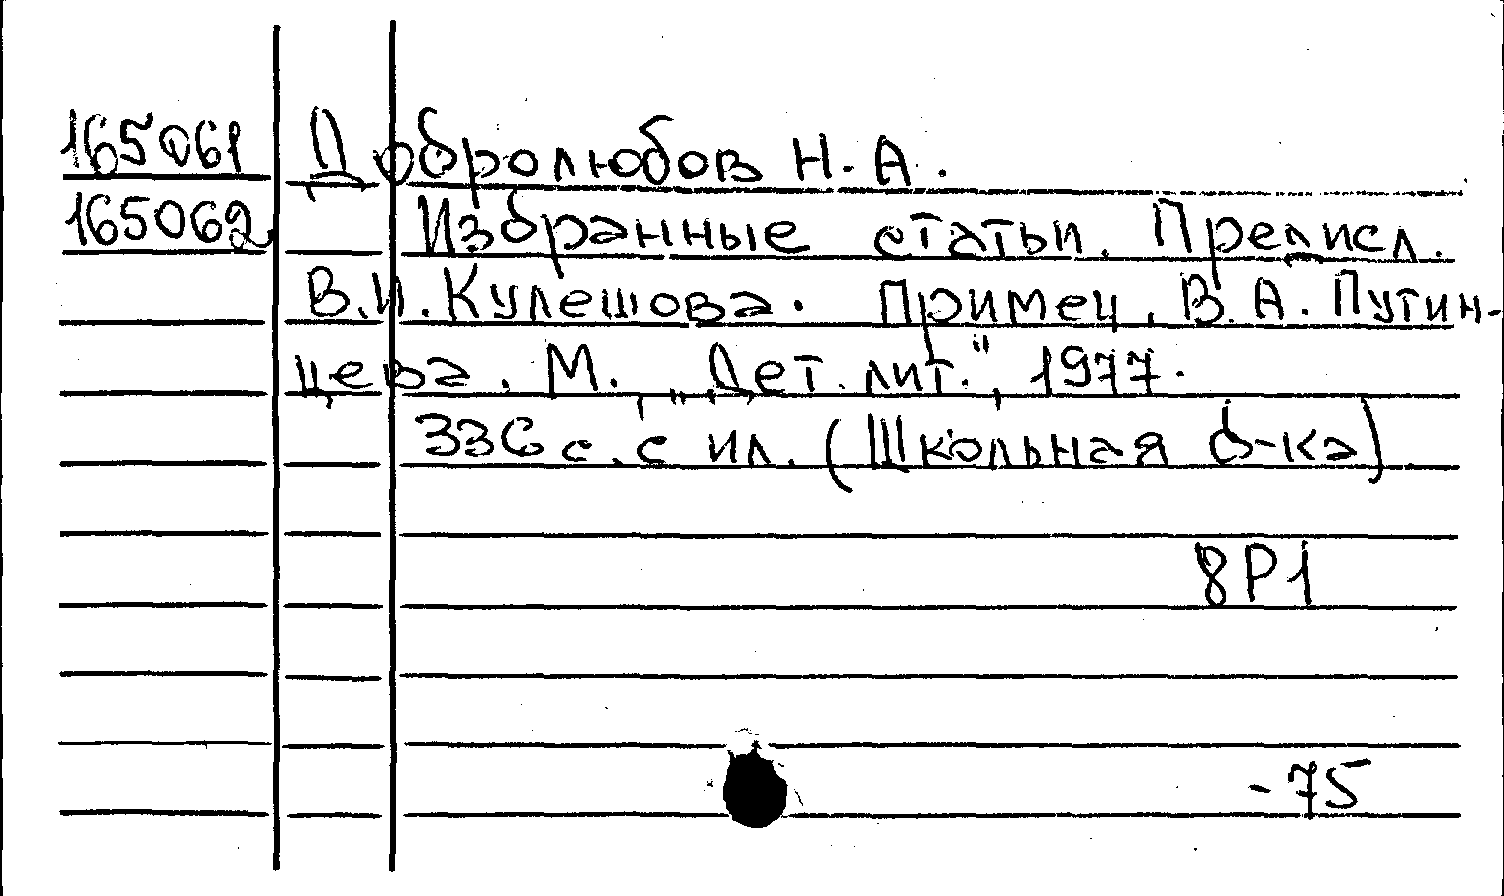 165061 Добролюбов Н. А.
165062 Избранные статьи. Предисл.
В.И. Кулешова. Примеч. В. А. Путин-
цева. М., „Дет. лит.", 1977.
336 с. с ил. (Школьная б-ка)
8Р1
-75